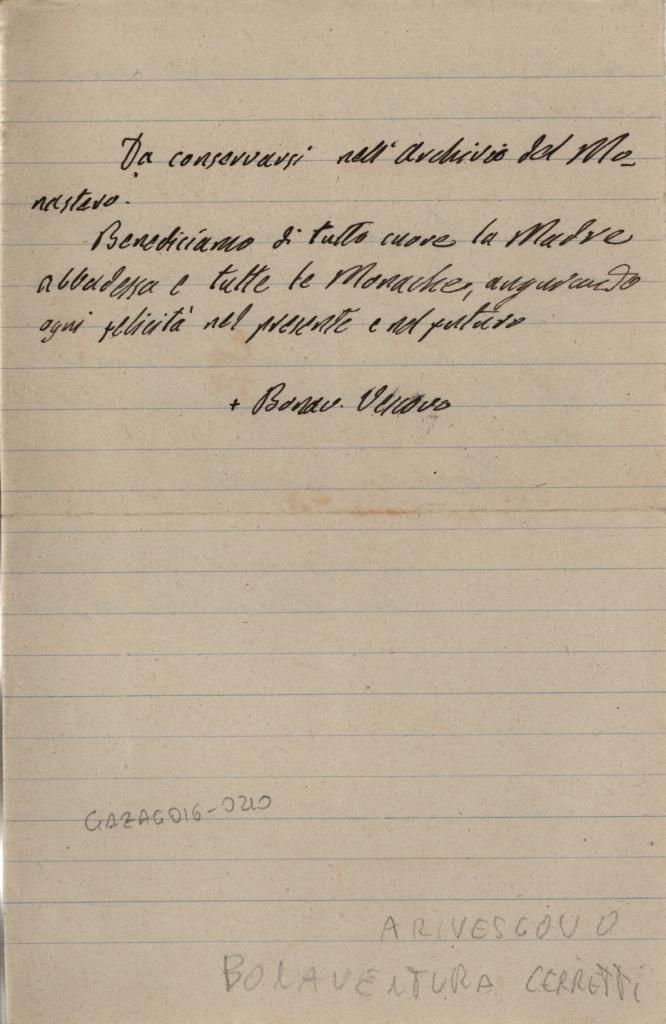 Da conservarsi nell'Archivio del Mo-
nastero.
Benediciamo di tutto cuore la Madre
abbadessa e tutte le Monache, augurando
ogni felicità nel presente e nel futuro
+ Bonav. Vescovo
GAZAG016-0210
ARIVESCOVO
BONAVENTURA CERRETTI